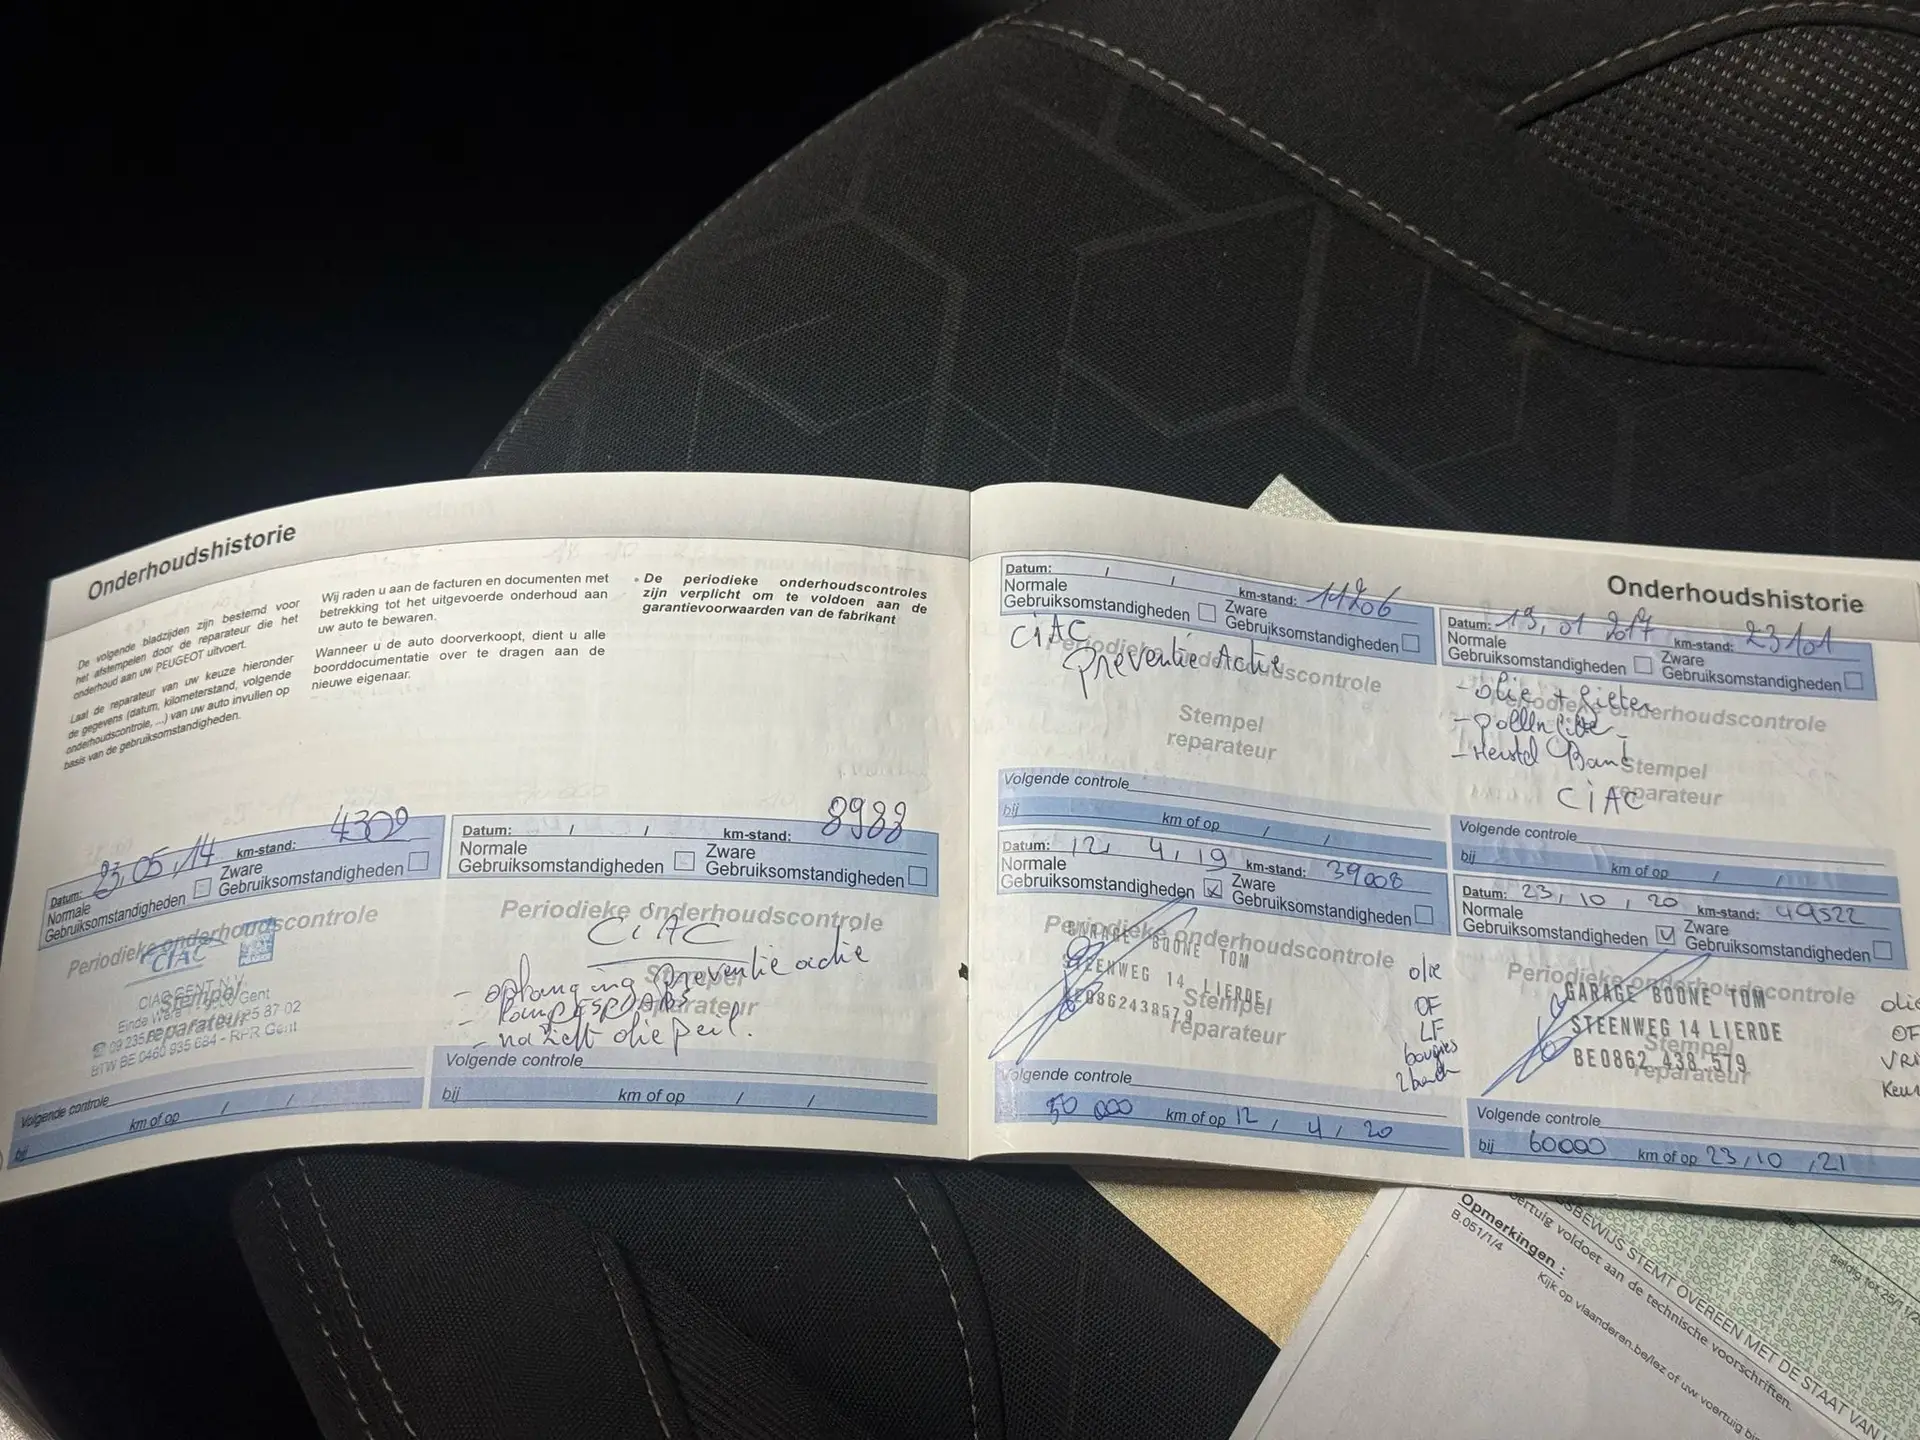 Onderhoudshistorie
De volgende bladzijden zijn bestemd voor
het afstempelen door de reparateur die het
onderhoud aan uw PEUGEOT uitvoert.
Laat de reparateur van uw keuze hieronder
de gegevens (datum, kilometerstand, volgende
onderhoudscontrole, ...) van uw auto invullen op
basis van de gebruiksomstandigheden.
Wij raden u aan de facturen en documenten met
betrekking tot het uitgevoerde onderhoud aan
uw auto te bewaren.
Wanneer u de auto doorverkoopt, dient u alle
boorddocumentatie over te dragen aan de
nieuwe eigenaar.
• De periodieke onderhoudscontroles
zijn verplicht om te voldoen aan de
garantievoorwaarden van de fabrikant
Datum: 23,05,14 km-stand: 4309
Normale Zware
Gebruiksomstandigheden Gebruiksomstandigheden
Periodieke onderhoudscontrole
CIAC
CIAC GENT N.V.
Stempel
reparateur
BTW BE 0460 935 684 - RPR Gent
Volgende controle
bij km of op / /
Datum: / / km-stand: 8988
Normale Zware
Gebruiksomstandigheden Gebruiksomstandigheden
Periodieke onderhoudscontrole
CIAC
preventie actie
Stempel
reparateur
olie peil.
Volgende controle
bij km of op / /
Onderhoudshistorie
Datum: / / km-stand: 11206
Normale Zware
Gebruiksomstandigheden Gebruiksomstandigheden
CIAC
Periodieke onderhoudscontrole
Preventie Actie
Stempel
reparateur
Volgende controle
bij km of op / /
Datum: 19,01 2017 km-stand: 23101
Normale Zware
Gebruiksomstandigheden Gebruiksomstandigheden
- olie + filter
Periodieke onderhoudscontrole
- Pollenfilter
- Herstel Band
Stempel
CIAC
reparateur
Volgende controle
bij km of op / /
Datum: 12, 4, 19 km-stand: 39008
Normale Zware
Gebruiksomstandigheden Gebruiksomstandigheden
Periodieke onderhoudscontrole
GARAGE BOONE TOM
STEENWEG 14 LIERDE
BE0862438579
Stempel
reparateur
olie
OF
LF
bougies
Volgende controle
50 000 km of op 12, 4, 20
Datum: 23, 10, 20 km-stand: 49522
Normale Zware
Gebruiksomstandigheden Gebruiksomstandigheden
Periodieke onderhoudscontrole
GARAGE BOONE TOM
STEENWEG 14 LIERDE
Stempel
BE0862.438.579
reparateur
olie
OF
Volgende controle
bij 60000 km of op 23,10,21
Opmerkingen :
B.051/1/4
Kijk op vlaanderen.be/lez of uw voertuig
voertuig voldoet aan de technische voorschriften.
STEMT OVEREEN MET DE STAAT VAN
geldig tot 25/11/2